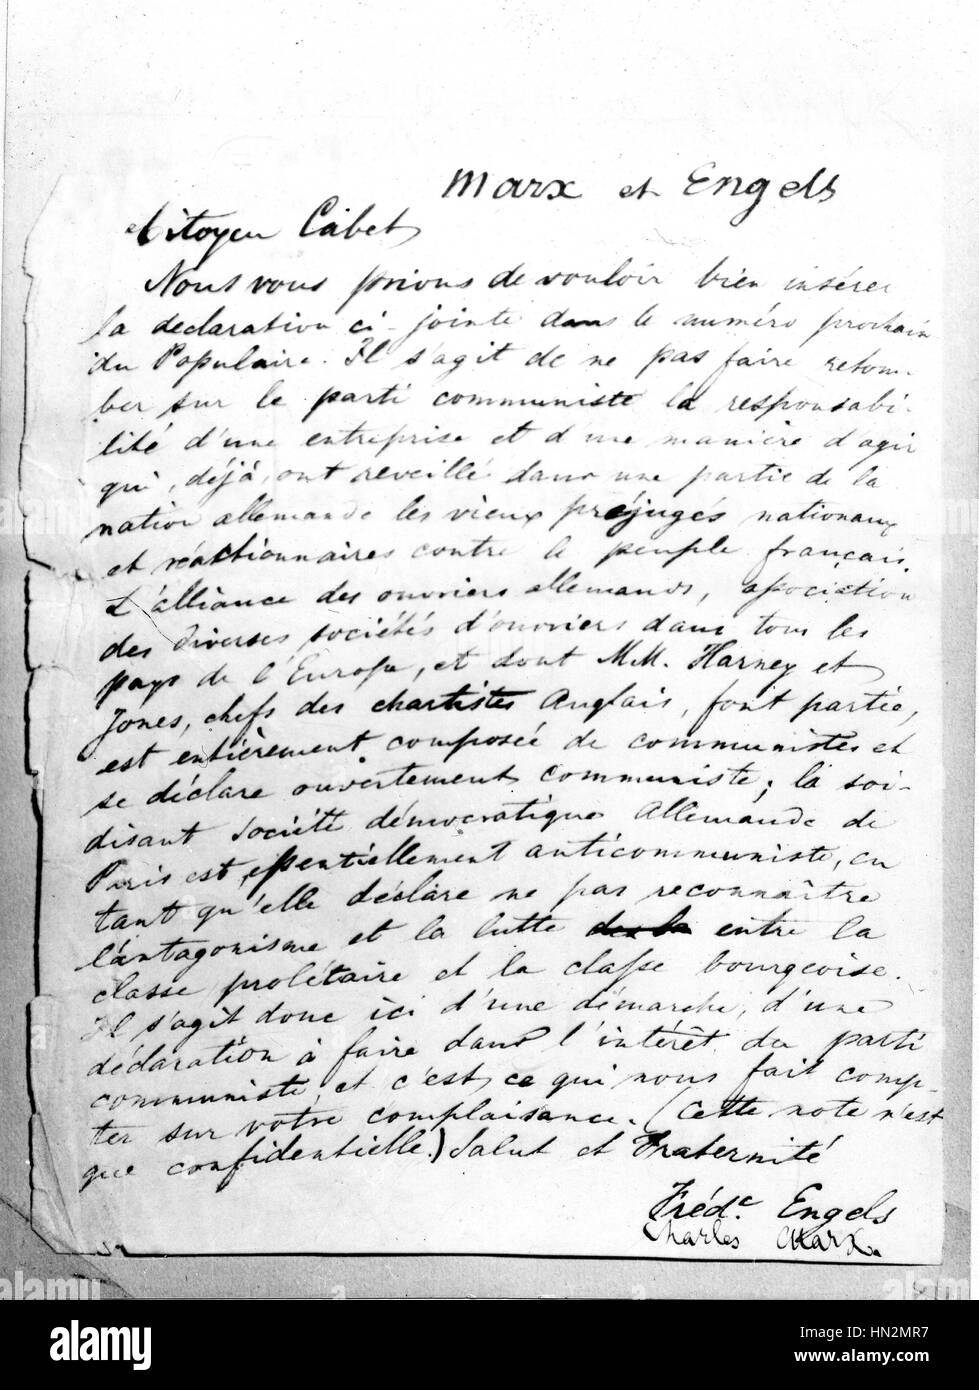 Marx et Engels
Citoyen Cabet
Nous vous prions de vouloir bien insérer
la declaration ci-jointe dans le numéro prochain
du Populaire. Il s'agit de ne pas faire retom-
ber sur le parti communiste la responsabi-
lité d'une entreprise et d'une manière d'agir
qui, déjà, ont reveillé dans une partie de la
nation allemande les vieux préjugés nationaux
et réactionnaires contre le peuple français.
L'alliance des ouvriers allemands, association
des diverses sociétés d'ouvriers dans tous les
pays de l'Europe, et dont M.M. Harney et
Jones, chefs des chartistes Anglais, font partie,
est entièrement composée de communistes et
se déclare ouvertement communiste; la soi-
disant société démocratique Allemande de
Paris est essentiellement anticommuniste, en
tant qu'elle déclare ne pas reconnaître
l'antagonisme et la lutte entre la
classe prolétaire et la classe bourgeoise.
Il s'agit donc ici d'une démarche, d'une
déclaration à faire dans l'intérêt du parti
communiste et c'est ce qui nous fait comp-
ter sur votre complaisance. (Cette note n'est
que confidentielle.) Salut et Fraternité
Fréd.c Engels
Charles Marx.
alamy
alamy
Image ID: HN2MR7
www.alamy.com